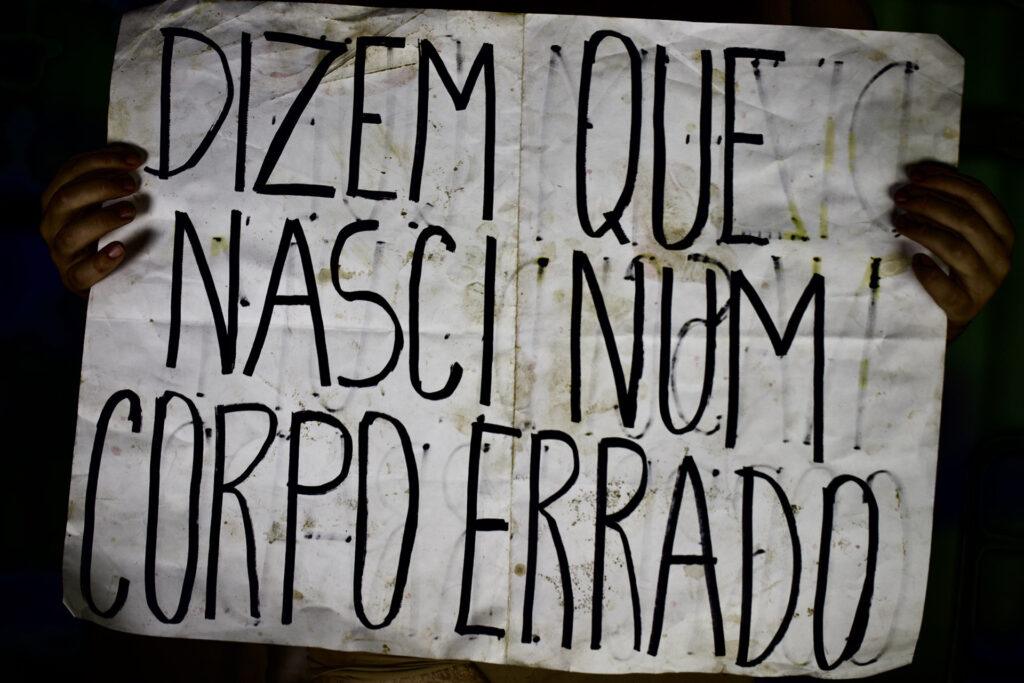 DIZEM QUE
NASCI NUM
CORPO ERRADO